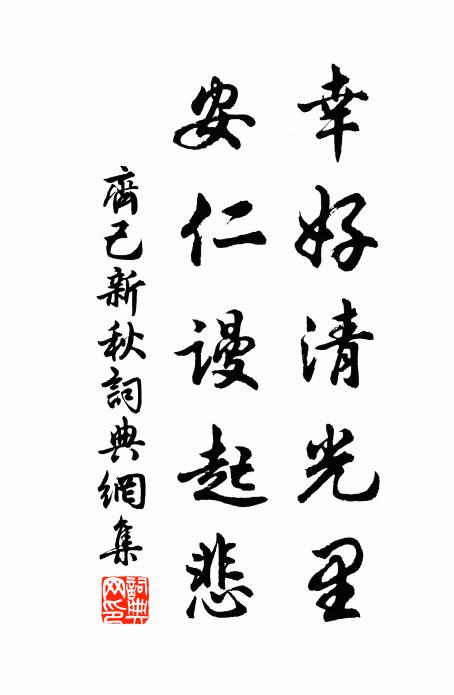 幸好清光里
安仁谩起悲
齊己新秋詞典網集
詞典網印